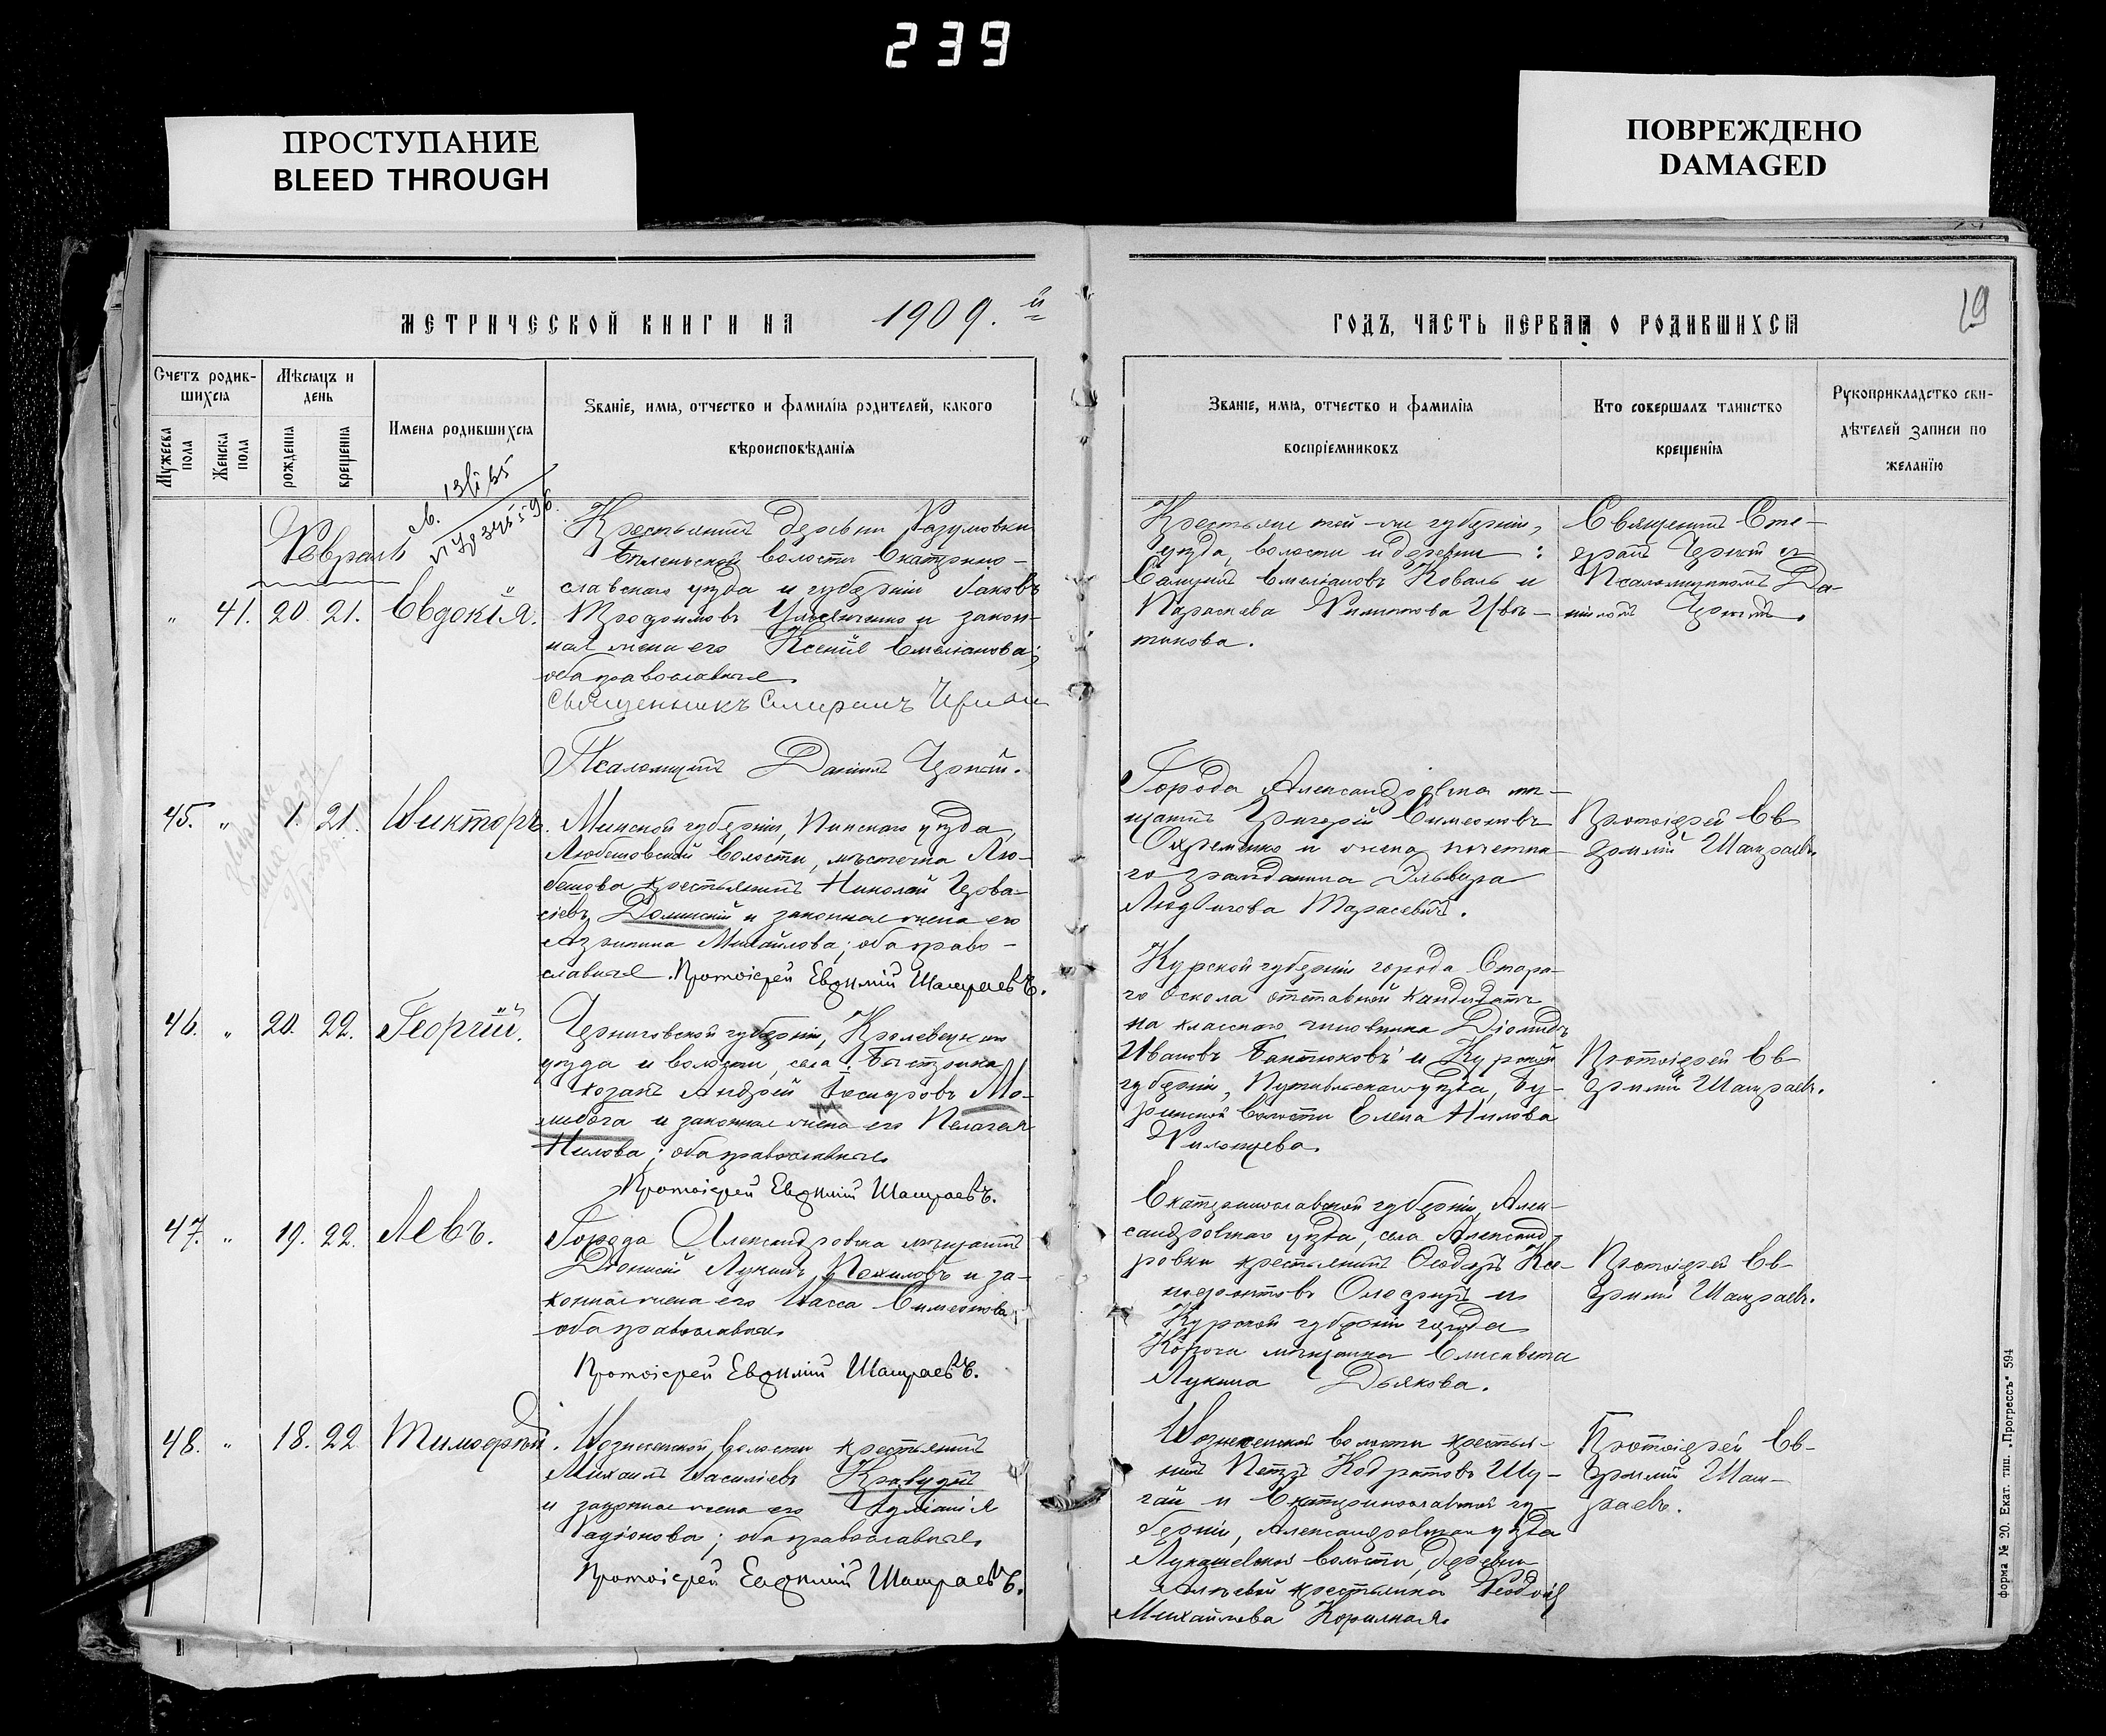 239
ПРОСТУПАНИЕ
BLEED THROUGH
ПОВРЕЖДЕНО
DAMAGED
19
МЕТРИЧЕСКОЙ КНИГИ НА 1909.й
ГОДЪ, ЧАСТЬ ПЕРВАЯ О РОДИВШИХСЯ
Счетъ родив-
шихся
Мужеска пола
Женска пола
Мѣсяцъ и
день
рожденiя
крещенiя
Имена родившихся
Званiе, имя, отчество и фамилiя родителей, какого
вѣроисповѣданiя
Званiе, имя, отчество и фамилiя
воспрiемниковъ
Кто совершалъ таинство
крещенiя
Рукоприкладство сви-
дѣтелей записи по
желанiю
Февраль
" 41. 20. 21. Евдокiя.
Крестьянинъ деревни Разумовки
Бѣленьской волости Екатерино-
славскаго уѣзда и губернiи Iаковъ
Трофимовъ и закон-
ная жена его Ксенiя Емелiанова;
оба православные
Священникъ Стефанъ Черный
Псаломщикъ Данiилъ Черный.
Крестьяне той-же губернiи,
уѣзда, волости и деревни:
Емелiановъ Коваль и
Параскева Филиппова Цвѣ-
ткова.
Священникъ Сте-
фанъ Черный и
Псаломщикъ Да-
нiилъ Черный.
45. " 1. 21. Викторъ.
Минской губернiи, Пинскаго уѣзда,
Любешовской волости, мѣстечка Лю-
бешова крестьянинъ Николай Герва-
сiевъ Долинскiй и законная жена его
Агрипина Михайлова; оба право-
славные. Протоiерей Евфимiй Шамраевъ.
Города Александровска мѣ-
щанинъ Григорiй Симеоновъ
Охременко и жена почетна-
го гражданина Эльвира
Людвигова Тарасевичъ.
Протоiерей Ев-
фимiй Шамраевъ.
46. " 20. 22. Георгiй.
Черниговской губернiи, Кролевецкаго
уѣзда и волости, села Быстрика
козакъ Андрей Сидоровъ Мо-
и законная жена его Пелагея
Нилова; оба православные
Протоiерей Евфимiй Шамраевъ.
Курской губернiи города Стара-
го Оскола отставной кандидатъ
на класснаго чиновника Дiомидъ
Ивановъ Бантюковъ и Курской
губернiи, Путивльскаго уѣзда, Бу-
рынской волости Елена Нилова
Филонцева.
Протоiерей Ев-
фимiй Шамраевъ.
47. " 19. 22. Левъ.
Города Александровска мѣщанинъ
Дiонисiй Лукинъ Пехиловъ и за-
конная жена его Васса Симеонова;
оба православные
Протоiерей Евфимiй Шамраевъ.
Екатеринославской губернiи, Алек-
сандровскаго уѣзда, села Александ-
ровки крестьянинъ Ѳеодоръ Кс-
Олефиръ и
Курской губернiи города
Корочи мѣщанка Елисавета
Лукина Дьякова.
Протоiерей Ев-
фимiй Шамраевъ.
48. " 18. 22. Тимофей.
Вознесенской волости крестьянинъ
Михаилъ Васильевъ
и законная жена его
Родiонова; оба православные
Протоiерей Евфимiй Шамраевъ.
Вознесенской волости крестья-
нинъ Петръ Кодратовъ Шу-
гай и Екатеринославской гу-
бернiи, Александровскаго уѣзда
Лукашевской волости, деревни
крестьянка
Михайлова
Протоiерей Ев-
фимiй Шам-
раевъ.
форма № 20. Екат. тип. „Прогрессъ“ 594